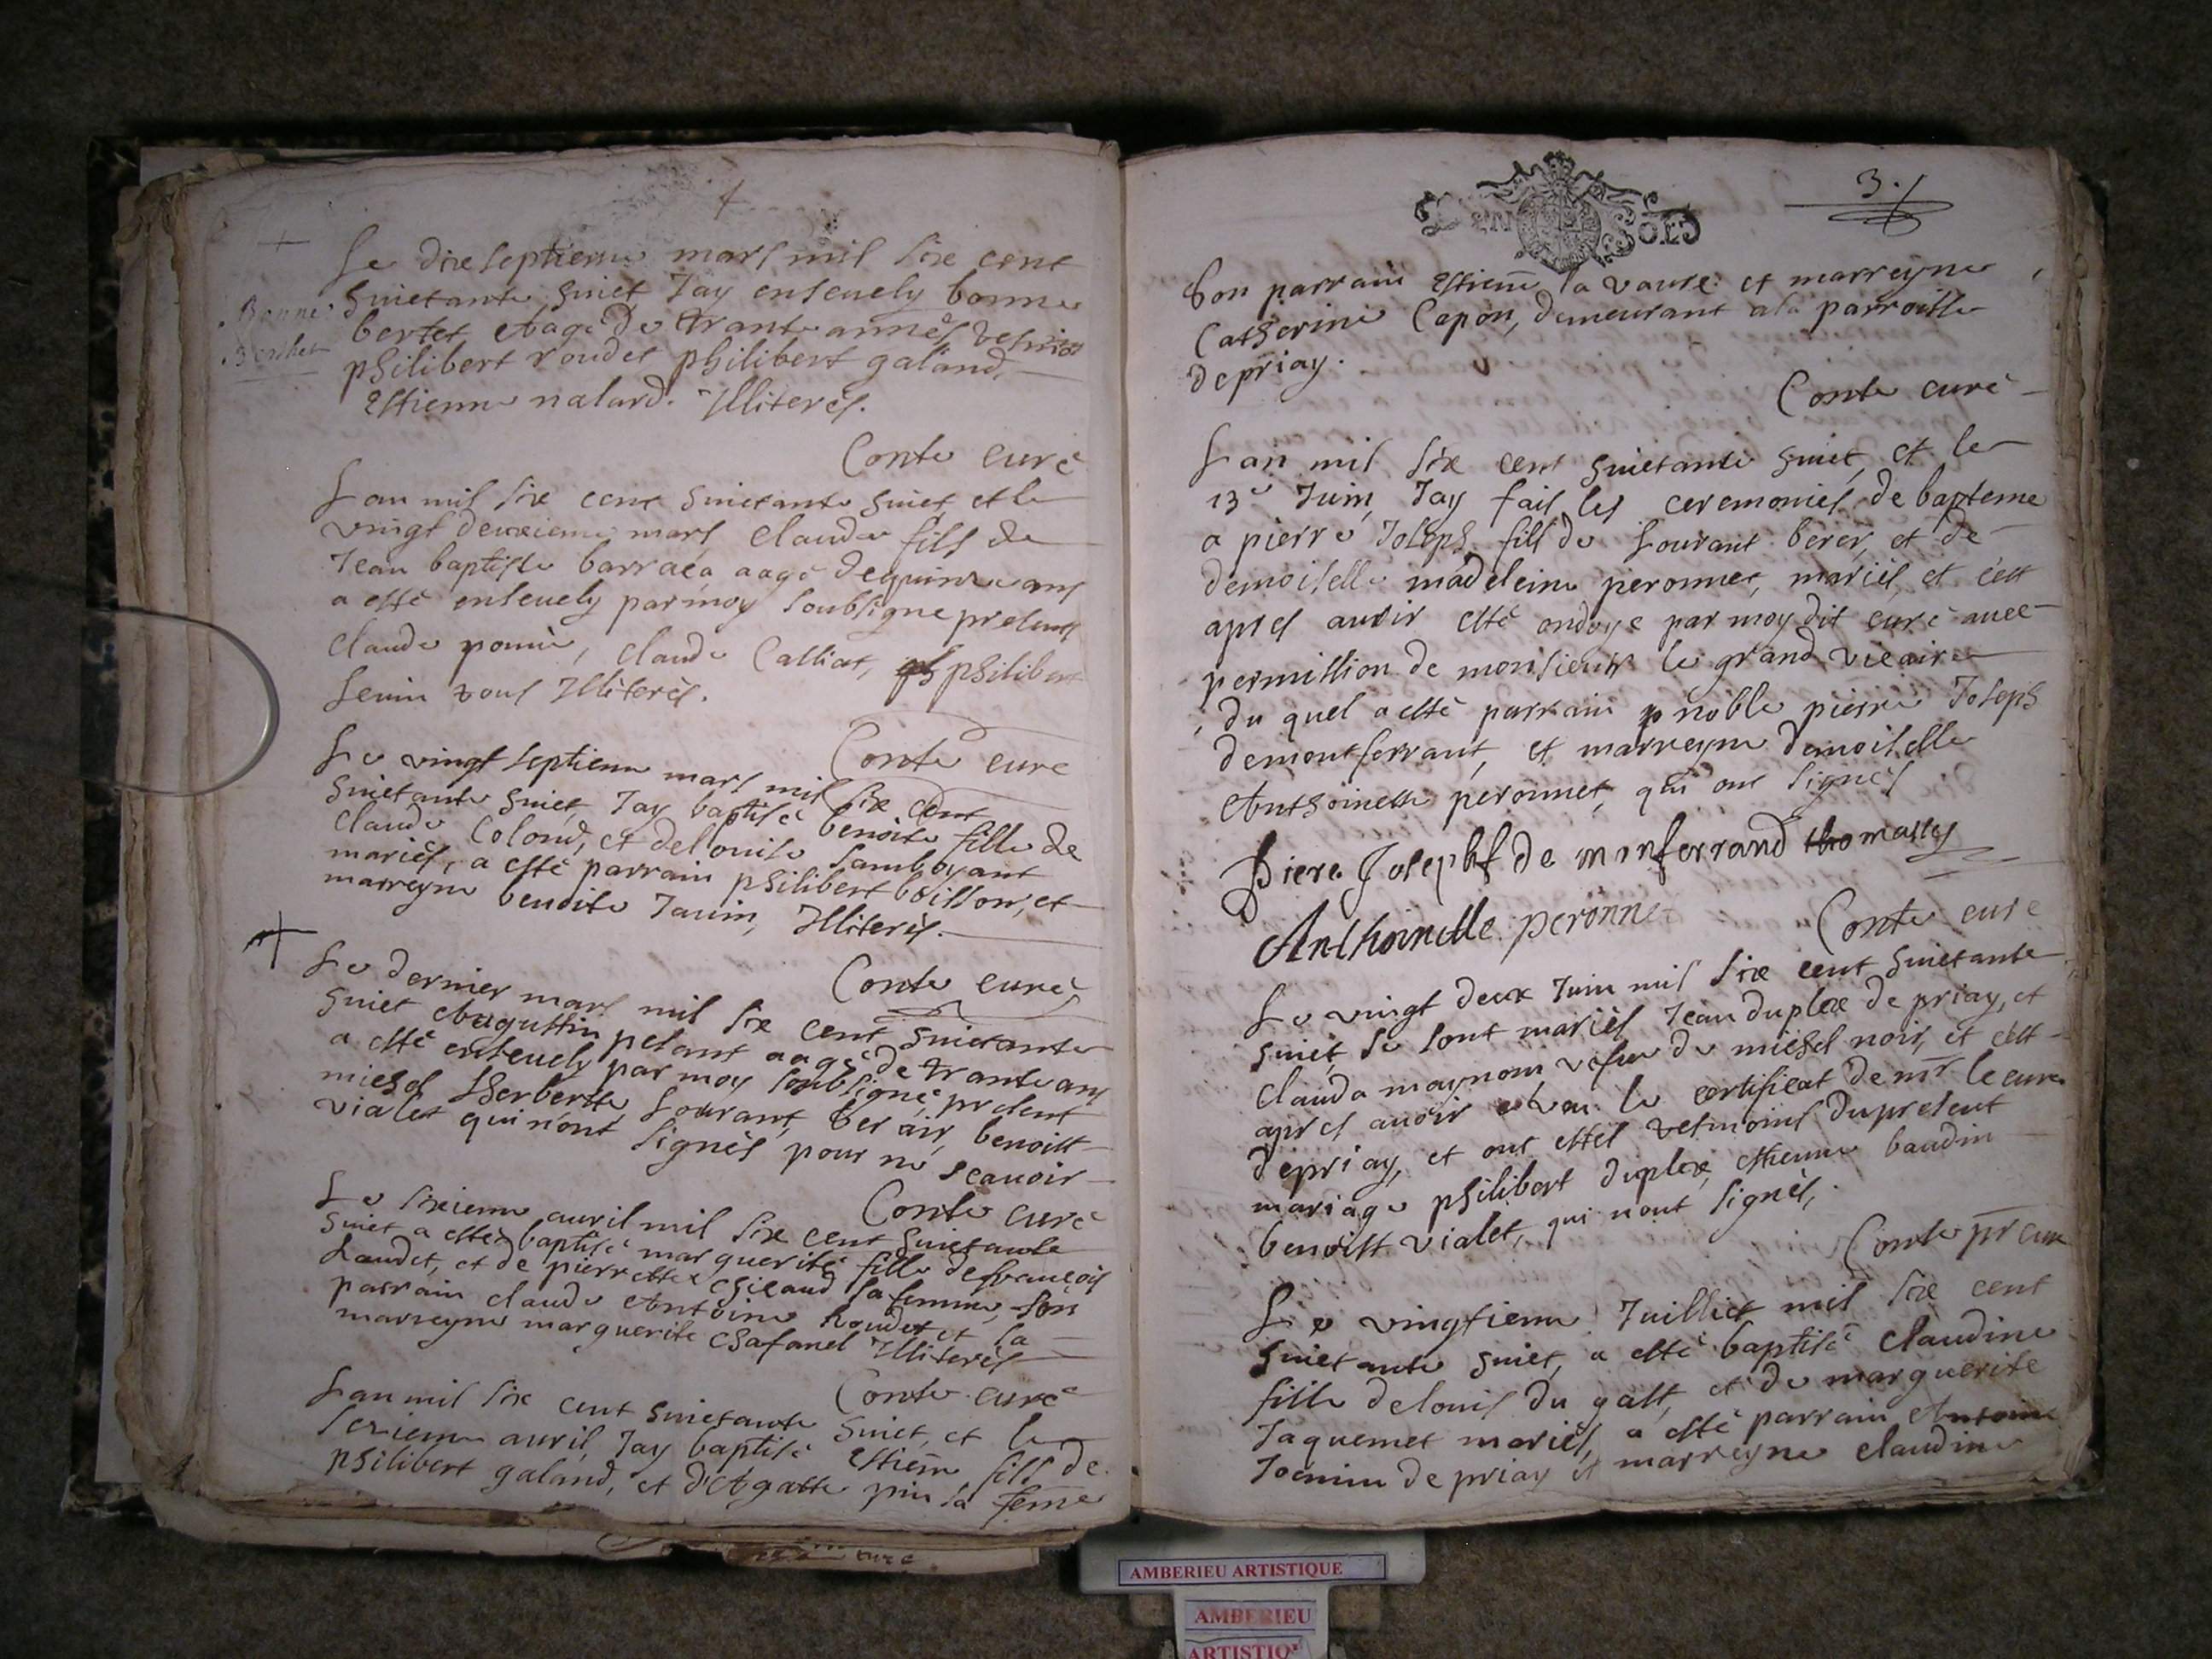 Le dixseptieme mars mil six cent
huictante huict Jay ensevely bonne
bertet Aagé de trante annés, tesmoins
philibert roudet philibert galand,
Estienne nalard. Illiterés.
Bonne
Berthet
Conte curé
Lan mil six cent huictante huict, et le
vingt deuxieme mars claude fils de
Jean baptiste barraca aagé de quinze ans
a esté ensevely par moy soubsigne presents
claude pomié, claude Calliat, philibert
sevin tous Illiterés.
Conte curé
Le vingt septieme mars mil six cent
huictante huict, Jay baptisé benoite fille de
claude Colond, et de louise Lamboyant
mariés, a esté parrain philibert boisson, et
marreyne benoite Janin, Illiterés.
Conte curé
Le dernier mars mil six cent huictante
huict Augustin pesant aagé de trante ans
a esté ensevely par moy soubsigné present
michel Lherbette, Lourant berair, benoist
vialet qui nont signés pour ne scavoir
Conte curé
Le sixieme avril mil six cent huictante
huict a esté baptisé marguerite fille de francois
Laudet, et de pierrette chicaud sa femme, son
parrain claude Antoine Roudet et sa
marreyne marguerite chafanel Illiterés
Conte curé
Lan mil six cent huictante huict, et le
sezieme avril, Jay baptisé Estiene fils de
philibert galand, et d'Agatte pin sa feme
3.
DEUX SOLS
Son parrain Estiene la vaure et marreyne
Catherine Capon, demeurant a la parroisse
de priay.
Conte curé
Lan mil six cent huictante huict, et le
13e Juin, Jay fait les ceremonies de bapteme
a pierre Joseph fils de Lourant berer, et de
demoiselle madeleine peronnet, mariés, et cest
apres avoir esté ondoye par moy dit curé avec
permission de monsieur le grand vicaire
du quel a esté parrain noble pierre Joseph
de montferrant, et marreyne demoiselle
Anthoinette peronnet, qui ont signés
Piere Joseph de monferrand thomassy
Anthoinette peronnet
Conte curé
Le vingt deux Juin mil six cent huictante
huict, se sont mariés Jean duplex de priay, et
Clauda maynom vefve de michel noir, et cest
apres avoir veu le certificat de mr le curé
de priay, et ont estes tesmoins du present
mariage philibert duplex, estienne baudin
benoist vialet, qui nont signés,
Conte ptr curé
Le vingtieme Juilliet mil six cent
huictante huict, a esté baptisé claudine
fille de louis du gast, et de marguerite
Jaquemet mariés, a esté parrain Antoine
Joemin de priay et marreyne claudine
AMBERIEU ARTISTIQUE
AMBERIEU
ARTISTIQUE